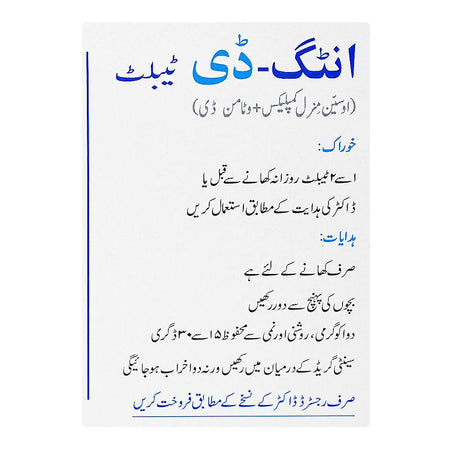 انٹگ-ڈی ٹیبلٹ
(اوسین منرل کمپلیکس + وٹامن ڈی)
خوراک:
۱ سے ۲ ٹیبلٹ روزانہ کھانے سے قبل یا
ڈاکٹر کی ہدایت کے مطابق استعمال کریں
ہدایات:
صرف کھانے کے لئے ہے
بچوں کی پہنچ سے دور رکھیں
دوا کو گرمی، روشنی اور نمی سے محفوظ ۱۵ سے ۳۰ ڈگری
سینٹی گریڈ کے درمیان میں رکھیں ورنہ دوا خراب ہو جائیگی
صرف رجسٹرڈ ڈاکٹر کے نسخے کے مطابق فروخت کریں